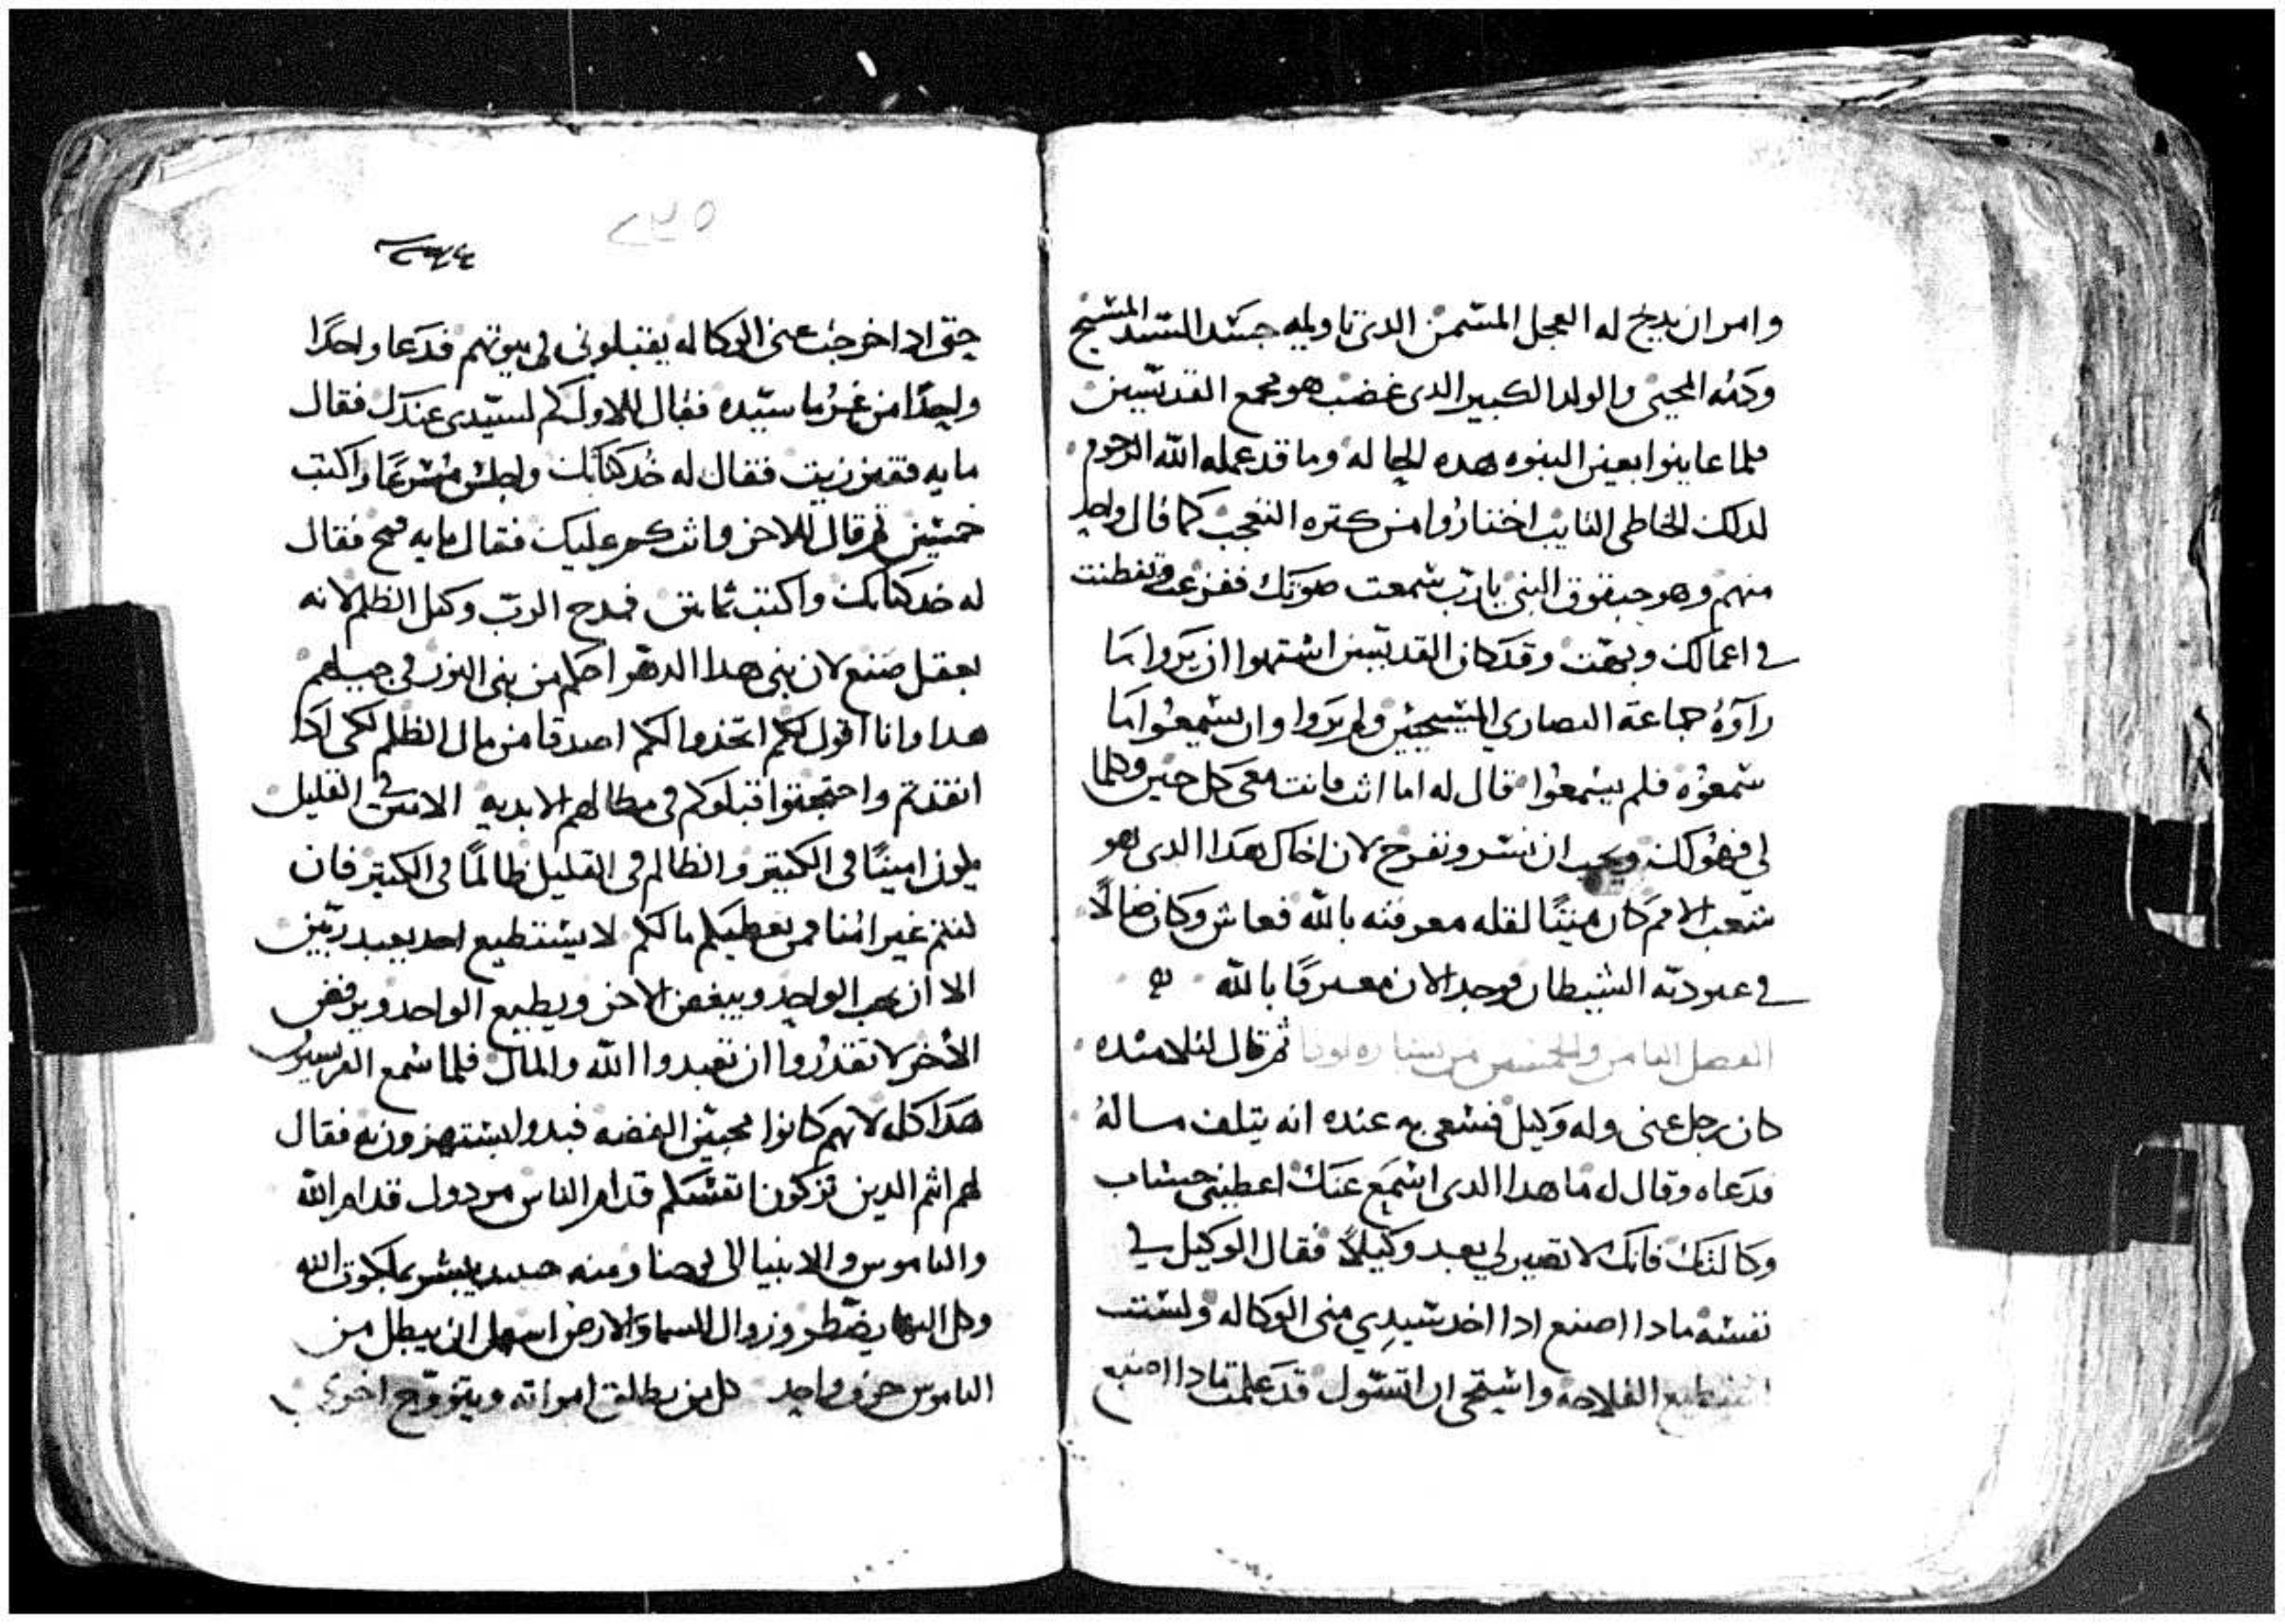 وامر ان يدبح له العجل المسمن الدى تاويله جسد السيد المسيح
ودمه المحيي والولد الكبير الدى غضب هو مجمع القديسين
فلما عاينوا بعين النبوه هده الحاله وما قد عمله الله الرحوم
لدلك الخاطى التايب احتاروا من كتره التعجب كما قال واحد
منهم وهو حبقوق النبى يارب سمعت صوتك ففزعت وتفطنت
فى اعمالك وبهت وقد كان القديسين اشتهوا ان يروا ما
راوه جماعة النصارى المسيحيين ولم يروا وان يسمعوا ما
سمعوه فلم يسمعوا قال له اما انت فانت معى كل حين وكلما
لي فهو لك ويجب ان نسر ونفرح لان اخاك هدا الدى هو
شعب الامم كان ميتا لقله معرفته بالله فعاش وكان ضالا
فى عبوديه الشيطان فوجد الان معترفا بالله
الفصل التامن والخمسين من بشاره لوقا ثم قال لتلاميده
كان رجل غنى وله وكيل فسعى به عنده انه يتلف ماله
فدعاه وقال له ما هدا الدى اسمع عنك اعطينى حساب
وكالتك فانك لا تصير لي بعد وكيلا فقال الوكيل في
نفسه مادا اصنع ادا اخد سيدي منى الوكاله ولست
استطيع الفلاحه واستحى ان اتسول قد علمت مادا اصنع
٢٣٥
حتى ادا اخرجت عنى الوكاله يقبلونى فى بيوتهم فدعا واحدًا
واحدًا من غرما سيده فقال للاول كم لسيدى عندك فقال
مايه قفيز زيت فقال له خد كتابك واجلس مسرعا واكتب
خمسين ثم قال للاخر وانت كم عليك فقال مايه قمح فقال
له خد كتابك واكتب ثمانين فمدح الرب وكيل الظلم لانه
بعقل صنع لان بنى هدا الدهر احكم من بنى النور فى جيلهم
هدا وانا اقول لكم اتخدوا لكم اصدقا من مال الظلم لكى ادا
انفدتم واحتجتوا قبلوكم فى مظالهم الابديه الامين فى القليل
يكون امينًا فى الكتير والظالم فى القليل ظالمًا فى الكتير فان
كنتم غير امنا فمن يعطيكم مالكم لا يستطيع احد يعبد ربين
الا ان يحب الواحد ويبغض الاخر ويطيع الواحد ويرفض
الأخر لا تقدروا ان تعبدوا الله والمال فلما سمع الفريسيون
هدا كله لانهم كانوا محبين الفضه فبدوا يستهزون به فقال
لهم انتم الدين تزكون انفسكم قدام الناس من دون قدام الله
والناموس والانبيا الى يوحنا ومنه يبشر بملكوت الله
وكل اليها يضطر وزوال السما والارض اسهل ان يبطل من
الناموس حرف واحد كل من يطلق امراته ويتزوج اخرى